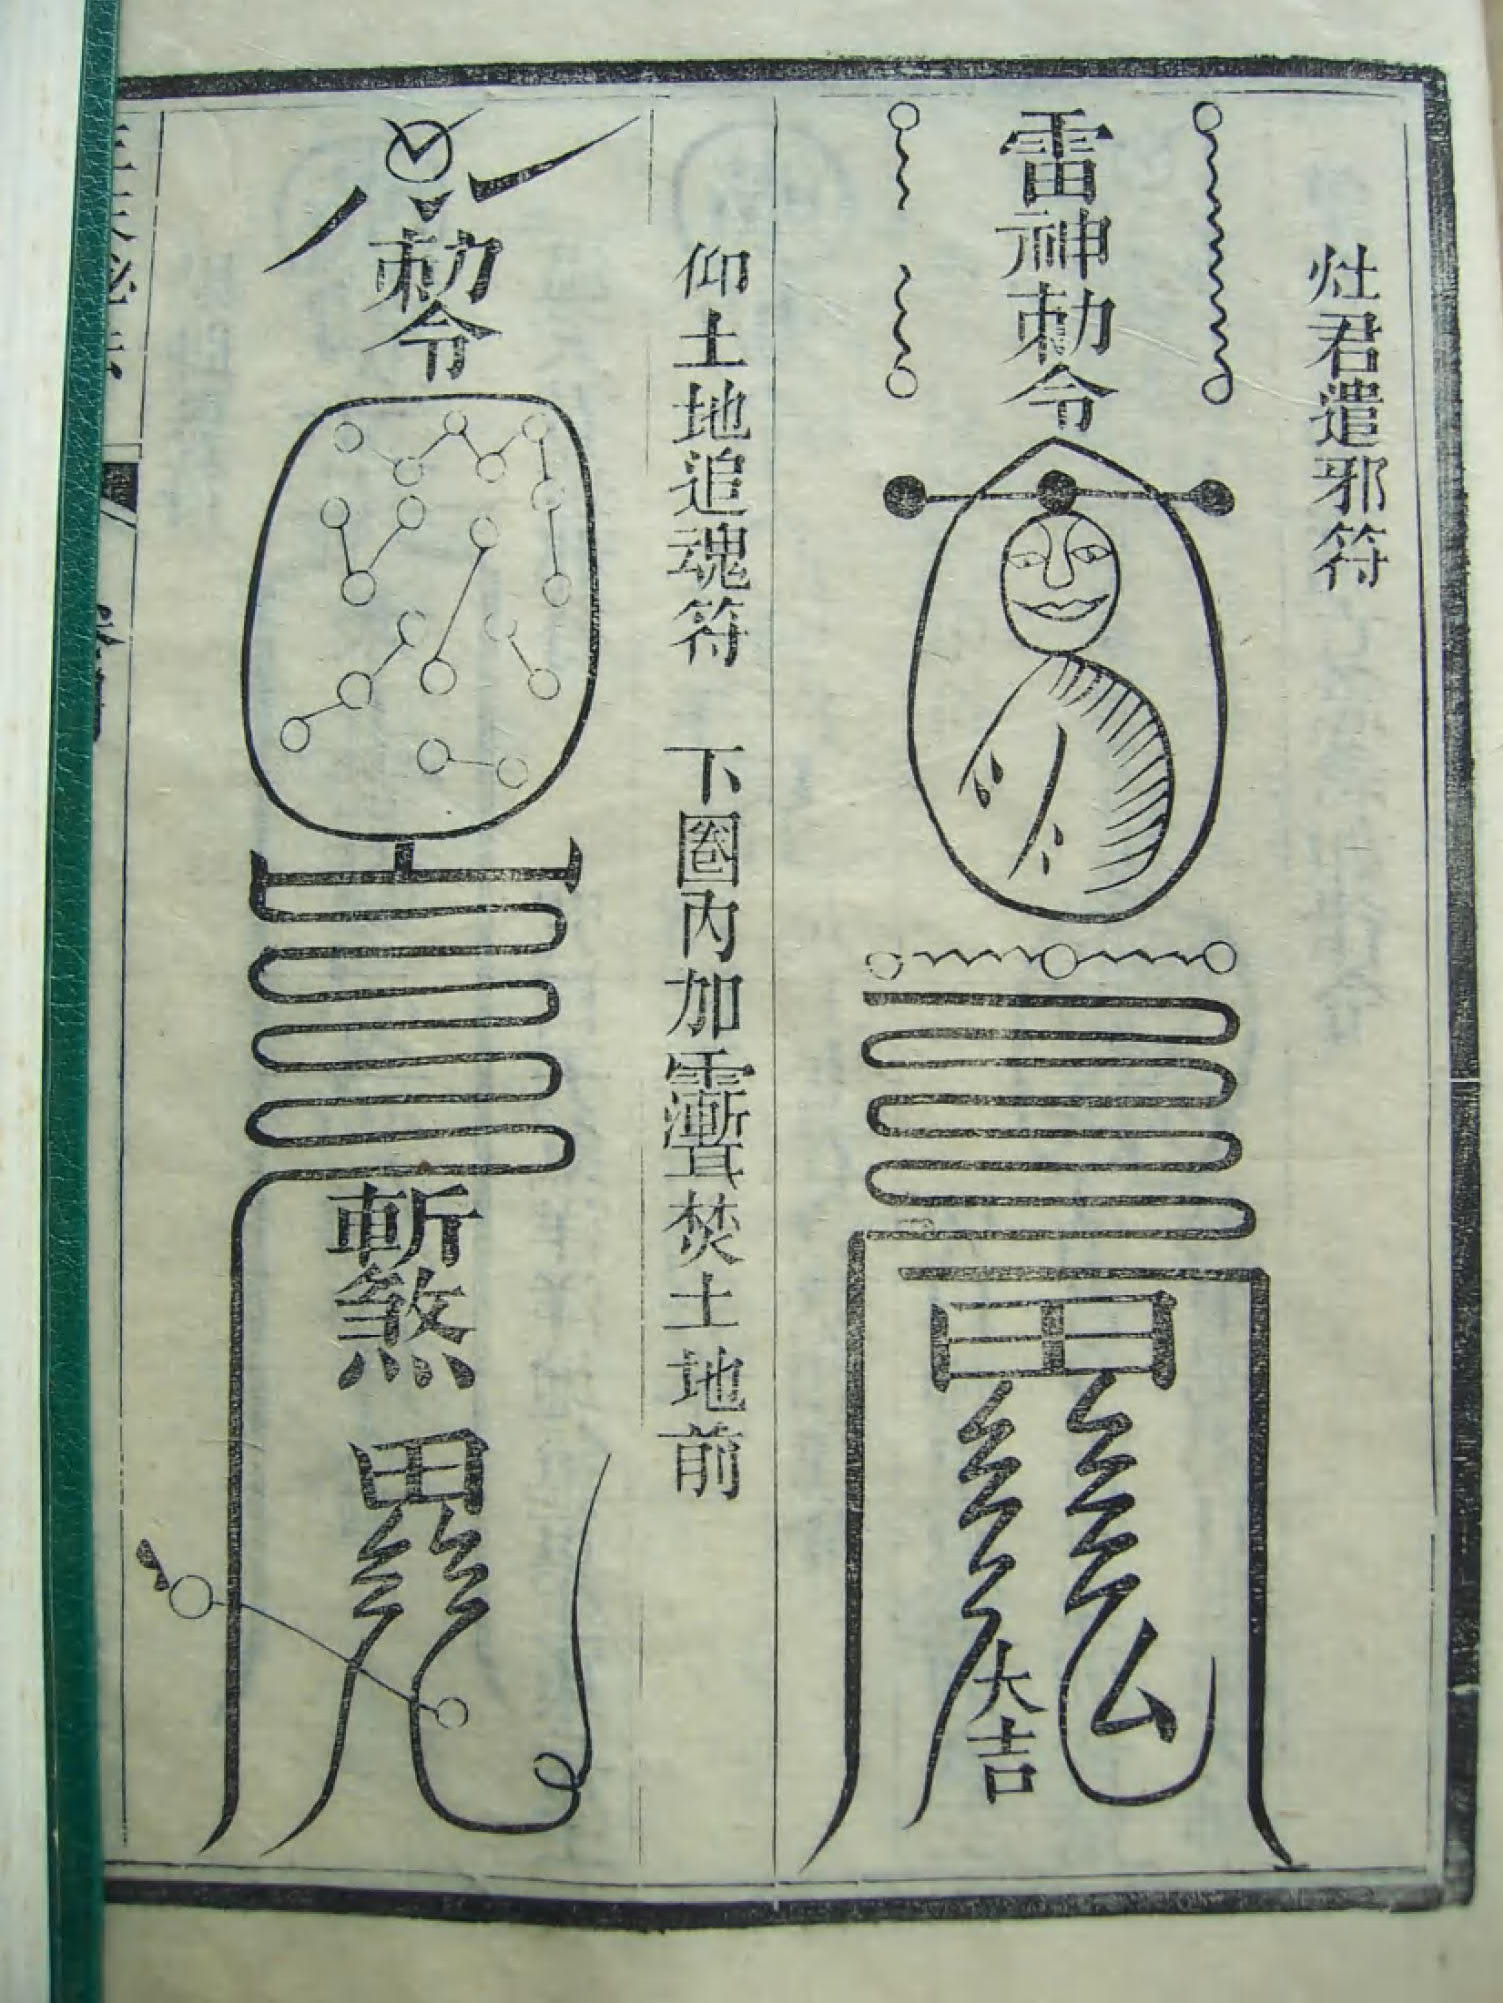 灶君遣邪符
雷神勅令
大吉
仰土地追魂符 下圈內加 焚土地前
勅令
斬煞